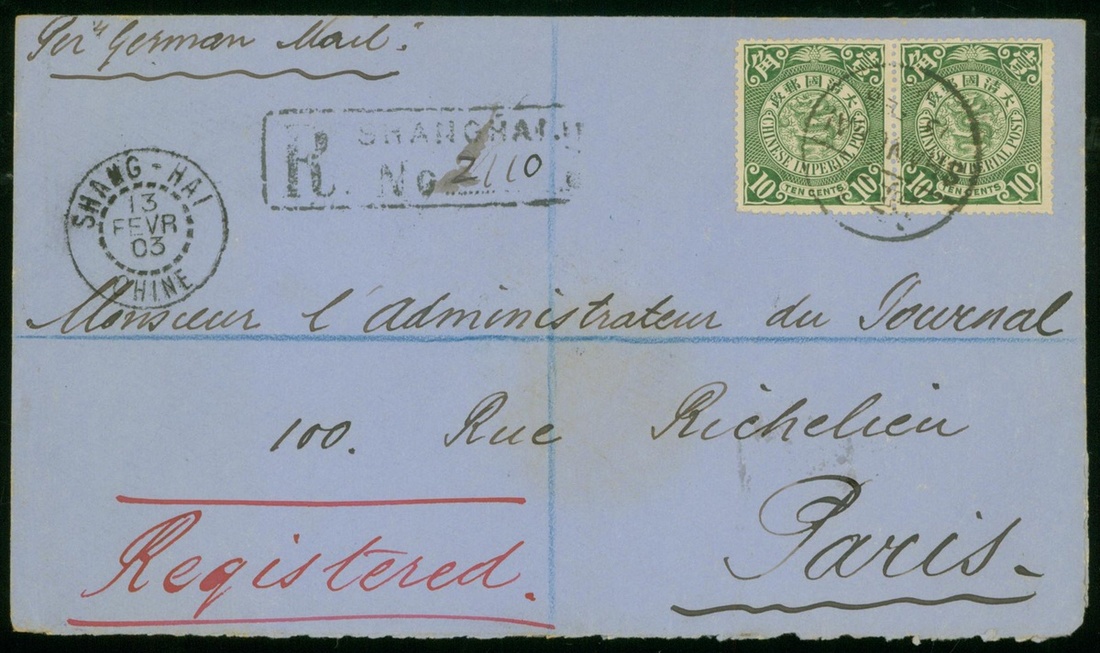 Per "German Mail."
SHANGHAI
R. No 2110
SHANG-HAI
13
FEVR
03
CHINE
壹角
大清國郵政
CHINESE IMPERIAL POST
10 TEN CENTS 10
壹角
大清國郵政
CHINESE IMPERIAL POST
10 TEN CENTS 10
Monsieur l'Administrateur du Journal
100. Rue Richelieu
Paris.
Registered.